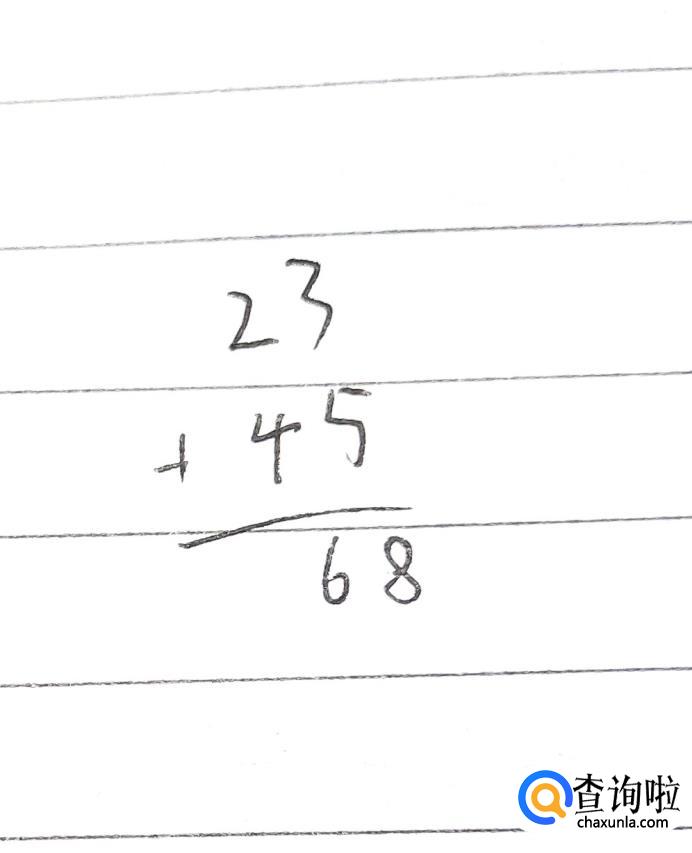 23
+ 45
68
查询啦
chaxunla.com